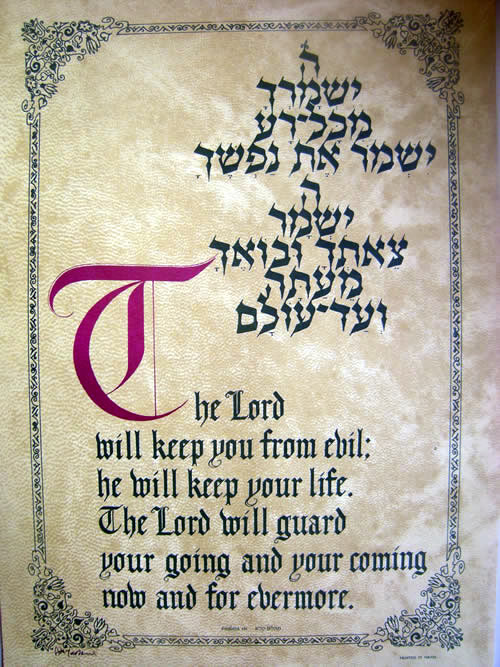 ה
יִשְׁמָרְךָ
מִכָּל־רָע
יִשְׁמֹר אֶת נַפְשֶׁךָ
ה
יִשְׁמָר
צֵאתְךָ וּבוֹאֶךָ
מֵעַתָּה
וְעַד־עוֹלָם
The Lord
will keep you from evil;
he will keep your life.
The Lord will guard
your going and your coming
now and for evermore.
PRINTED IN ISRAEL